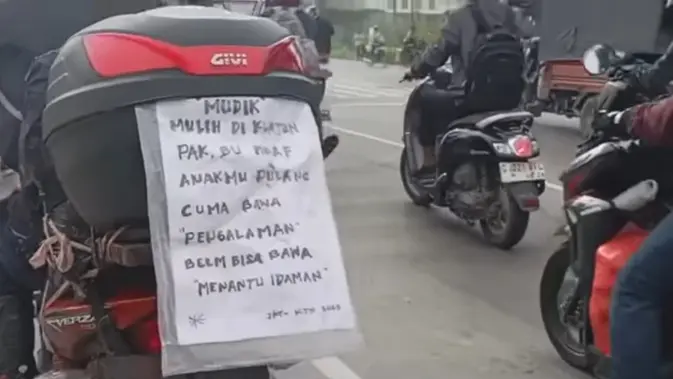 GIVI
"MUDIK"
MULIH DI KLATEN
PAK, BU MAAF
ANAKMU PULANG
CUMA BAWA
"PENGALAMAN"
BELM BISA BAWA
"MENANTU IDAMAN"
VERZA